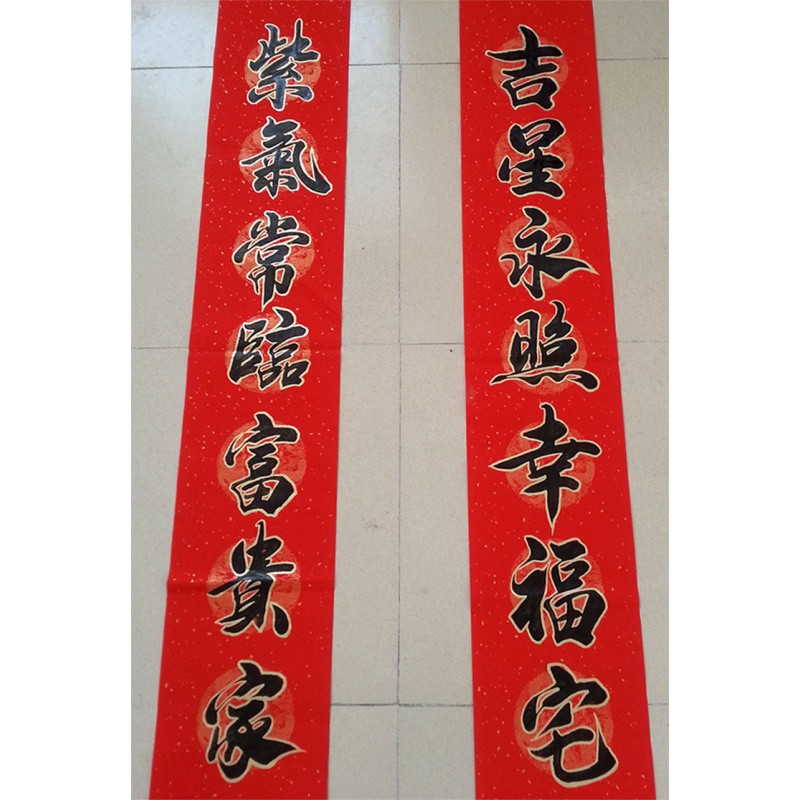 吉星永照幸福宅
紫氣常臨富貴家